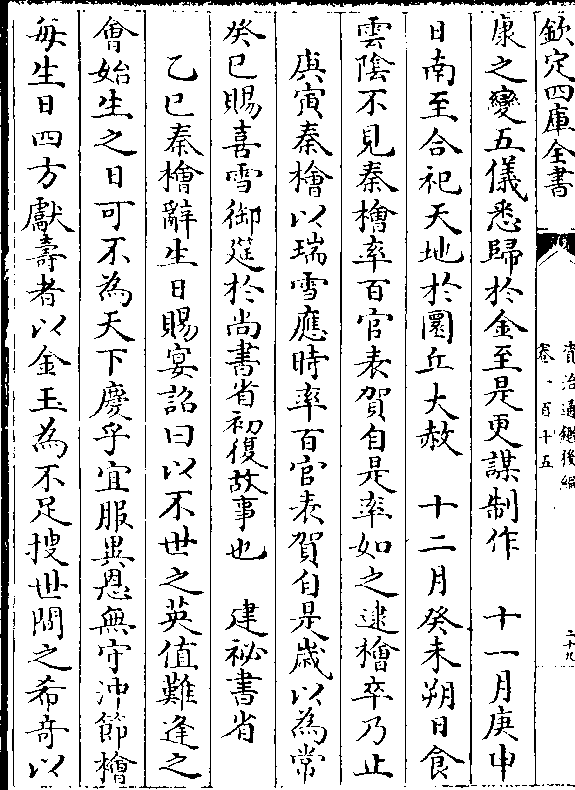 欽定四庫全書
資治通鑑後編
卷一百十五
二十九
康之變五儀悉歸於金至是更謀制作　十一月庚申
日南至合祀天地於圜丘大赦　十二月癸未朔日食
雲陰不見秦檜率百官表賀自是率如之逮檜卒乃止
庚寅秦檜以瑞雪應時率百官表賀自是歲以為常
癸巳賜喜雪御筵於尚書省初復故事也　建祕書省
乙巳秦檜辭生日賜宴詔曰以不世之英值難逢之
會始生之日可不為天下慶乎宜服異恩無守沖節檜
每生日四方獻壽者以金玉為不足搜世間之希奇以